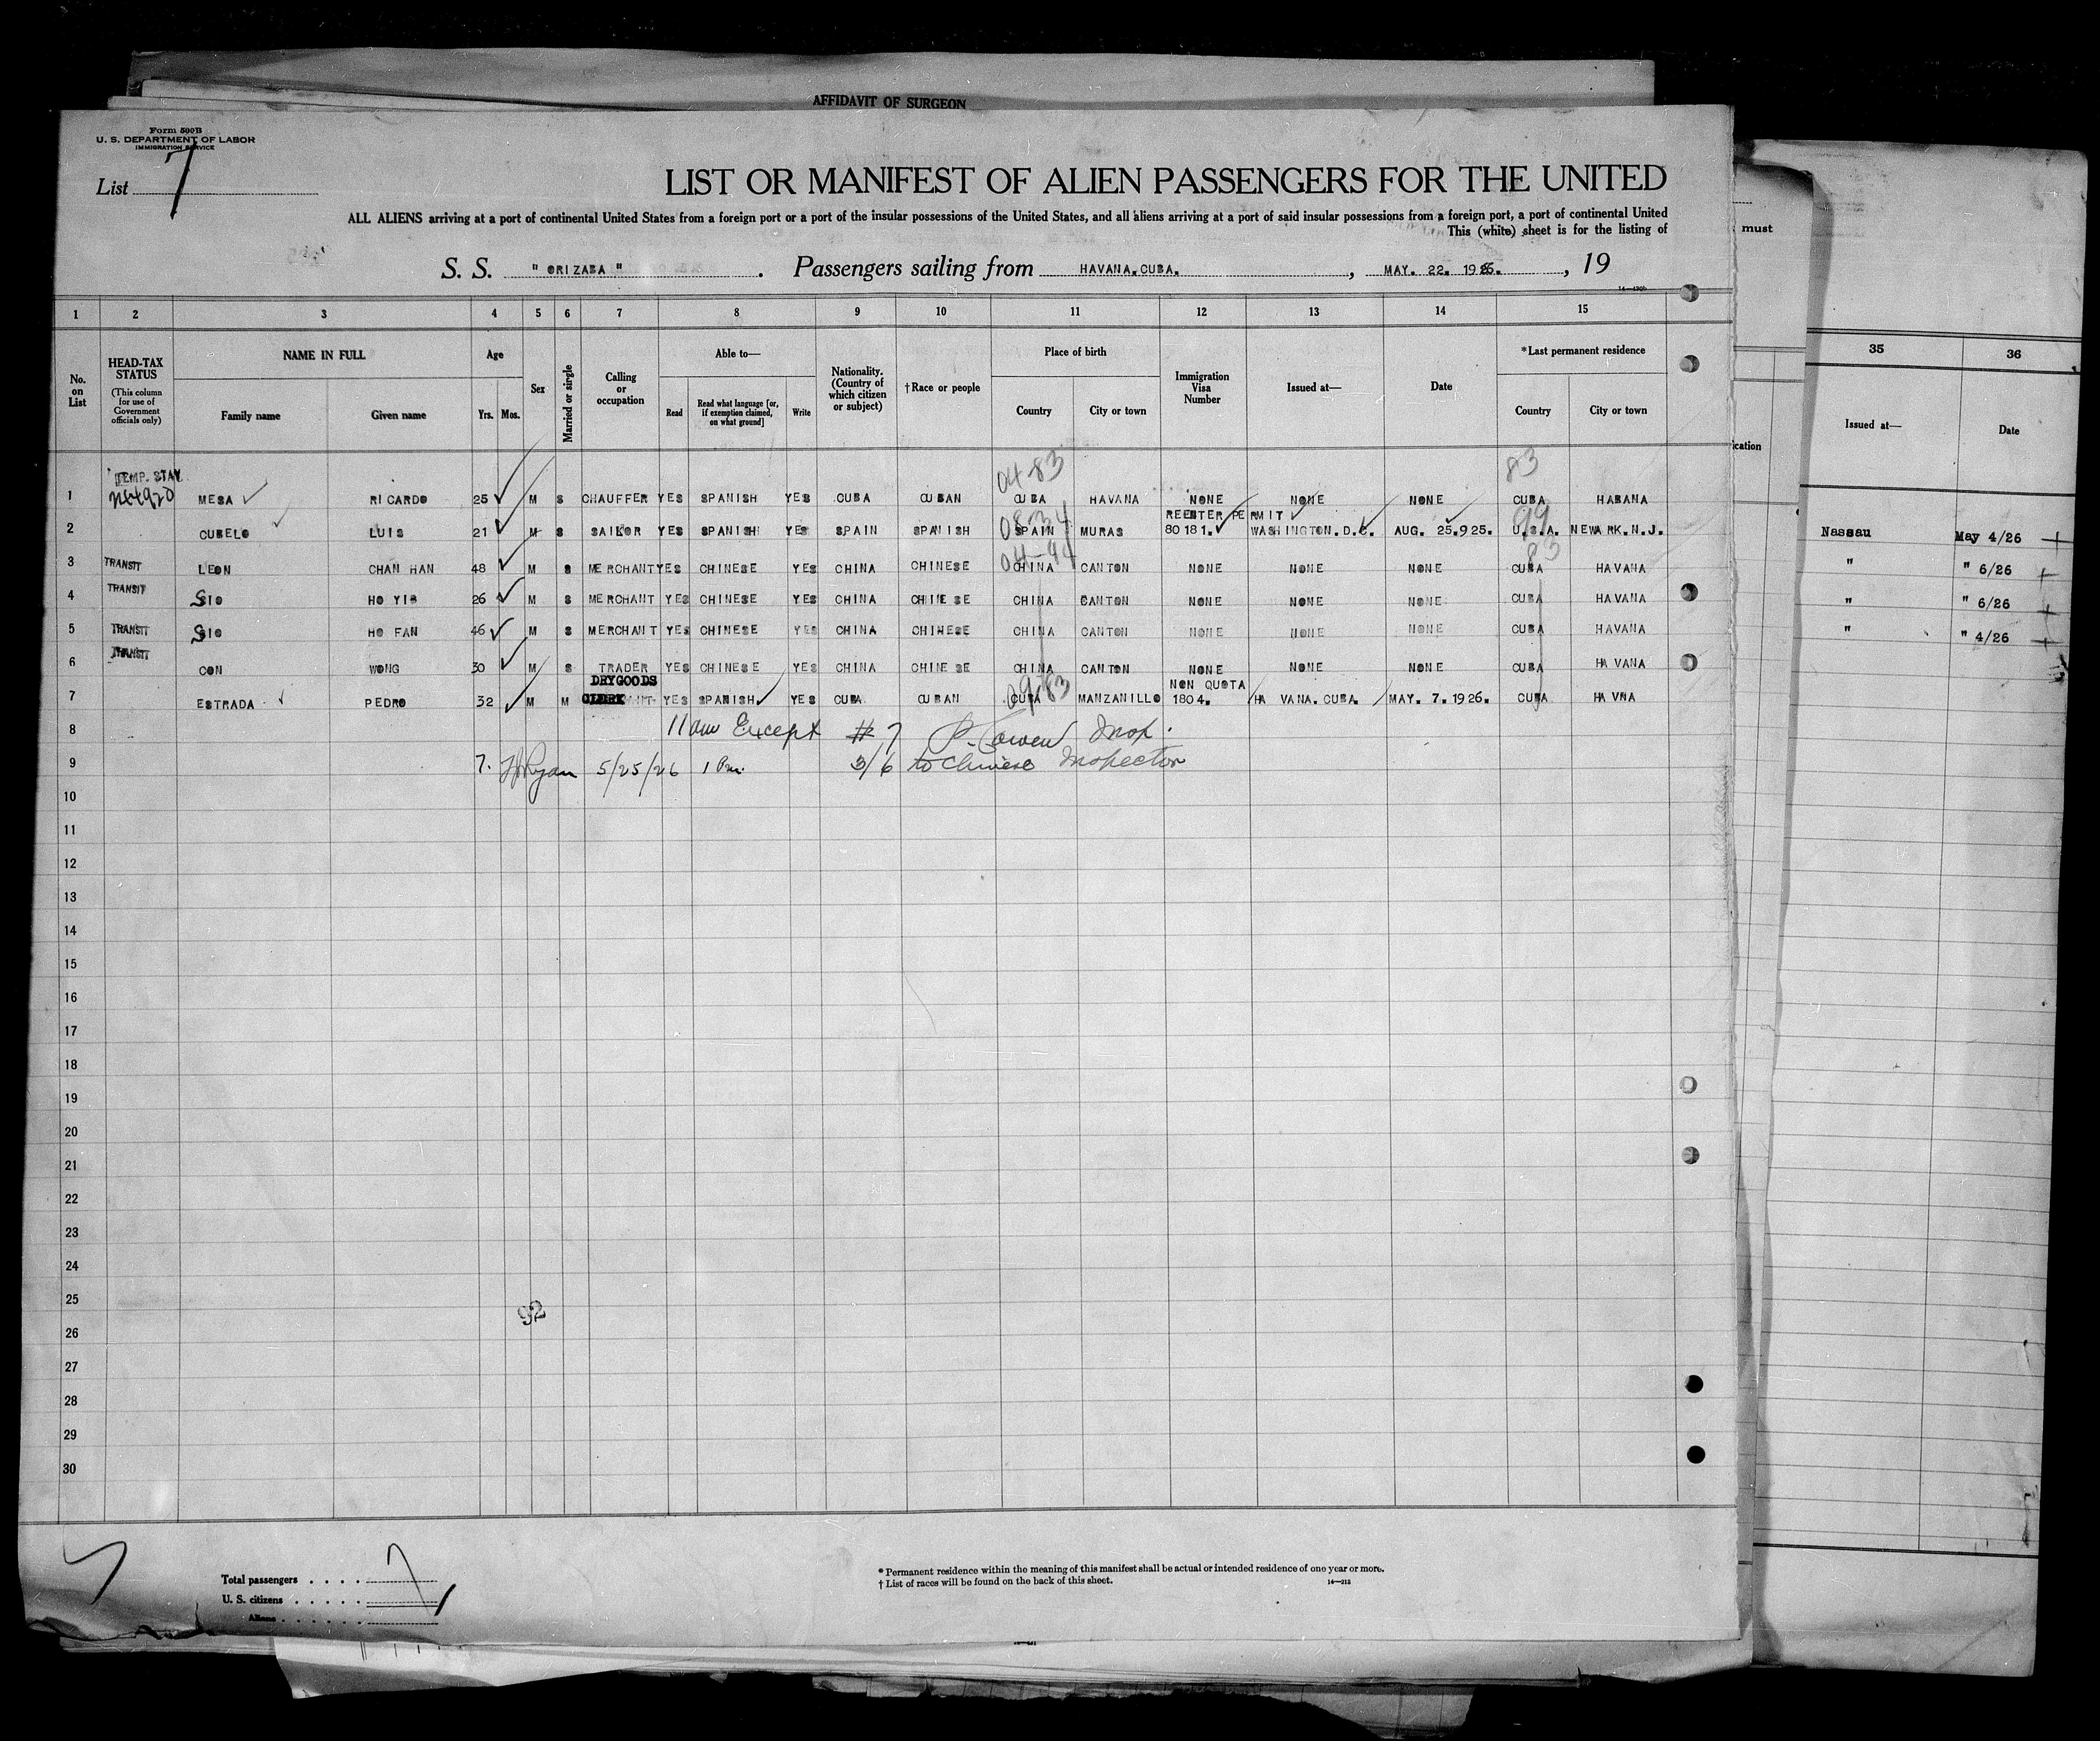 AFFIDAVIT OF SURGEON
Form 500B
U. S. DEPARTMENT OF LABOR
IMMIGRATION SERVICE
List 7
LIST OR MANIFEST OF ALIEN PASSENGERS FOR THE UNITED
ALL ALIENS arriving at a port of continental United States from a foreign port or a port of the insular possessions of the United States, and all aliens arriving at a port of said insular possessions from a foreign port, a port of continental United
This (white) sheet is for the listing of
must
S. S. " ORIZABA " . Passengers sailing from HAVANA.CUBA. , MAY. 22. 1926. , 19
1 2 3 4 5 6 7 8 9 10 11 12 13 14 15
No. on List
HEAD-TAX STATUS (This column for use of Government officials only)
NAME IN FULL
Family name Given name
Age
Yrs. Mos.
Sex
Married or single
Calling or occupation
Able to—
Read Read what language [or, if exemption claimed, on what ground] Write
Nationality. (Country of which citizen or subject)
†Race or people
Place of birth
Country City or town
Immigration Visa Number
Issued at—
Date
*Last permanent residence
Country City or town
04-83 83
TEMP. STAY
1 MESA RICARDO 25 M S CHAUFFER YES SPANISH YES CUBA CUBAN CUBA HAVANA NONE NONE NONE CUBA HABANA
REENTER PERMIT
08-34 99
2 CUBELO LUIS 21 M S SAILOR YES SPANISH YES SPAIN SPANISH SPAIN MURAS 80181. WASHINGTON.D.C. AUG. 25.925. U.S.A. NEWARK.N.J.
83
3 TRANSIT LEON CHAN HAN 48 M S MERCHANT YES CHINESE YES CHINA CHINESE CHINA CANTON NONE NONE NONE CUBA HAVANA
4 TRANSIT SIO HO YIB 26 M S MERCHANT YES CHINESE YES CHINA CHINESE CHINA CANTON NONE NONE NONE CUBA HAVANA
5 TRANSIT SIO HO FAN 46 M S MERCHANT YES CHINESE YES CHINA CHINESE CHINA CANTON NONE NONE NONE CUBA HAVANA
6 TRANSIT CON WONG 30 M S TRADER YES CHINESE YES CHINA CHINESE CHINA CANTON NONE NONE NONE CUBA HAVANA
DRYGOODS NON QUOTA
7 ESTRADA PEDRO 32 M M CLERK YES SPANISH YES CUBA CUBAN CUBA MANZANILLO 1804. HAVANA.CUBA. MAY. 7.1926. CUBA HAVNA
8 11am Except #7 Insp.
9 7. Ryan 5/25/26 1 Pm. 3/6 to Chinese Inspector
10
11
12
13
14
15
16
17
18
19
20
21
22
23
24
25
92
26
27
28
29
30
Total passengers . . . . 7
U. S. citizens . . . . .
Aliens . . . . . .
* Permanent residence within the meaning of this manifest shall be actual or intended residence of one year or more.
† List of races will be found on the back of this sheet.
14—213
35 36
Issued at— Date
Nassau May 4/26
" " 6/26
" " 6/26
" " 4/26